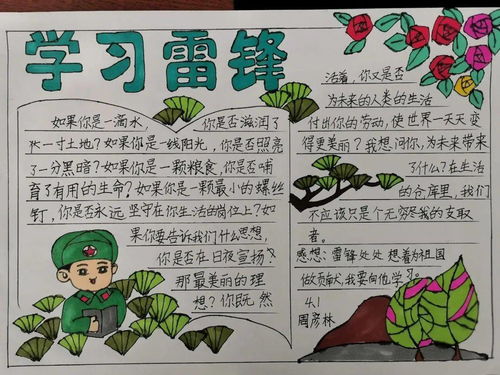 学习雷锋
如果你是一滴水，你是否滋润了
一寸土地？如果你是一线阳光，你是否照亮
了一分黑暗？如果你是一颗粮食，你是否哺
育了有用的生命？如果你是一颗最小的螺丝
钉，你是否永远坚守在你生活的岗位上？如
果你要告诉我们什么思想，
你是否在日夜宣扬
那最美丽的理
想？你既然
活着，你又是否
为未来的人类的生活
付出你的劳动，使世界一天天变
得更美丽？我想问你，为未来带来
了什么？在生活
的仓库里，我们
不应该只是个无穷尽我的支取
者。
感想：雷锋处处想着为祖国
做贡献，我要向他学习。
4.1
周彦林